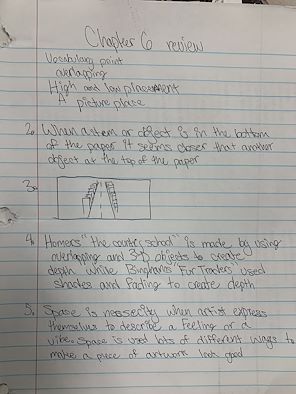 Chapter 6 review
Vocabulary point
overlapping
High and low placement
A picture place
2. When an item or object is in the bottom
of the paper it seems closer that another
object at the top of the paper
3.
4. Homers "the country school" is made by using
overlapping and 3-D objects to create
depth while Binghams Fur Traders used
shades and fading to create depth
5. Space is nessecity when artist express
themselves to describe a feeling or a
vibe. Space is used lots of different ways to
make a piece of artwork look good